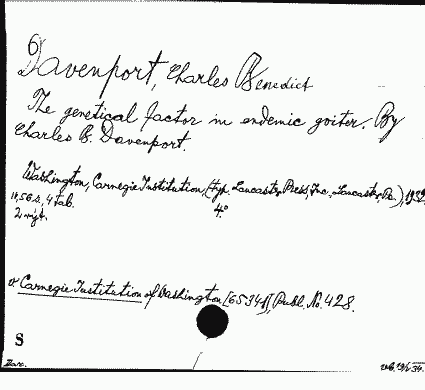 6
Davenport, Charles Benedict
The genetical factor in endemic goiter. By
Charles B. Davenport.
Washington, Carnegie Institution, (typ. Lancaster Press, Inc., Lancaster, Pa.), 1932.
4°
2 rigt.
Carnegie Institution of Washington, [6534], Publ. No. 428.
S